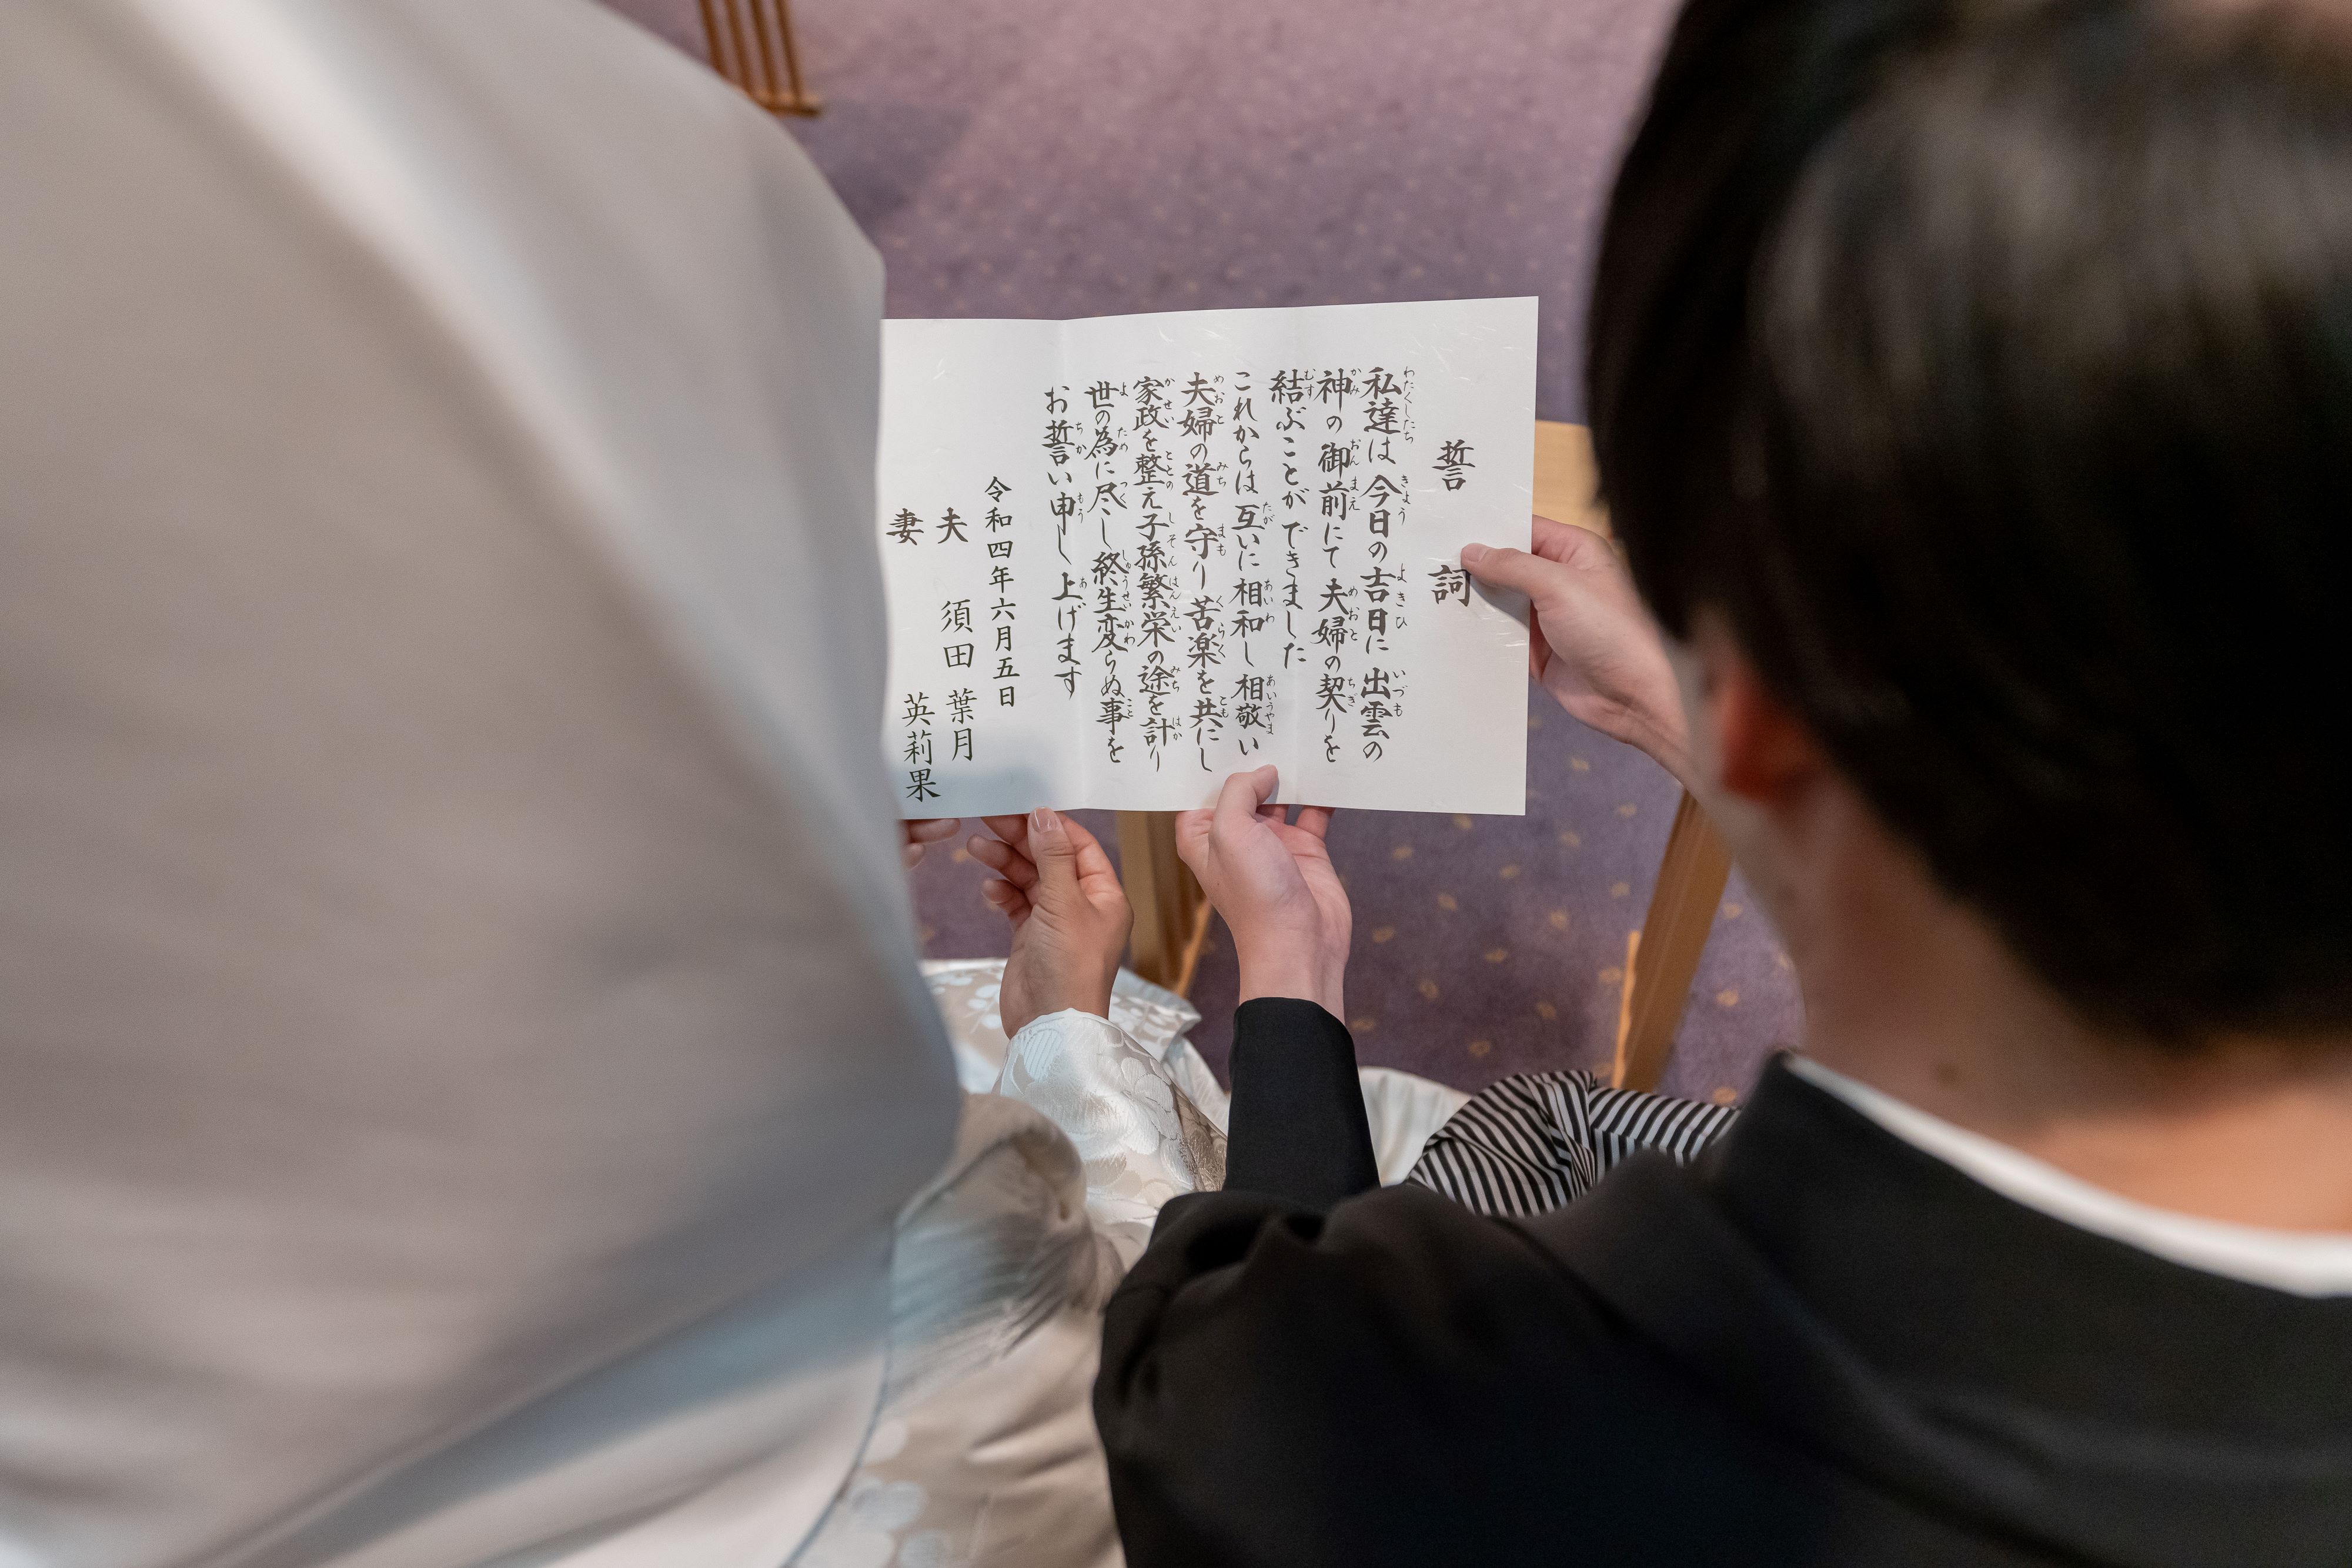 誓詞
私達は今日の吉日に出雲の
神の御前にて夫婦の契りを
結ぶことができました
これからは互いに相和し相敬い
夫婦の道を守り苦楽を共にし
家政を整え子孫繁栄の途を計り
世の為に尽し終生変らぬ事を
お誓い申し上げます
令和四年六月五日
夫 須田 葉月
妻 英莉果